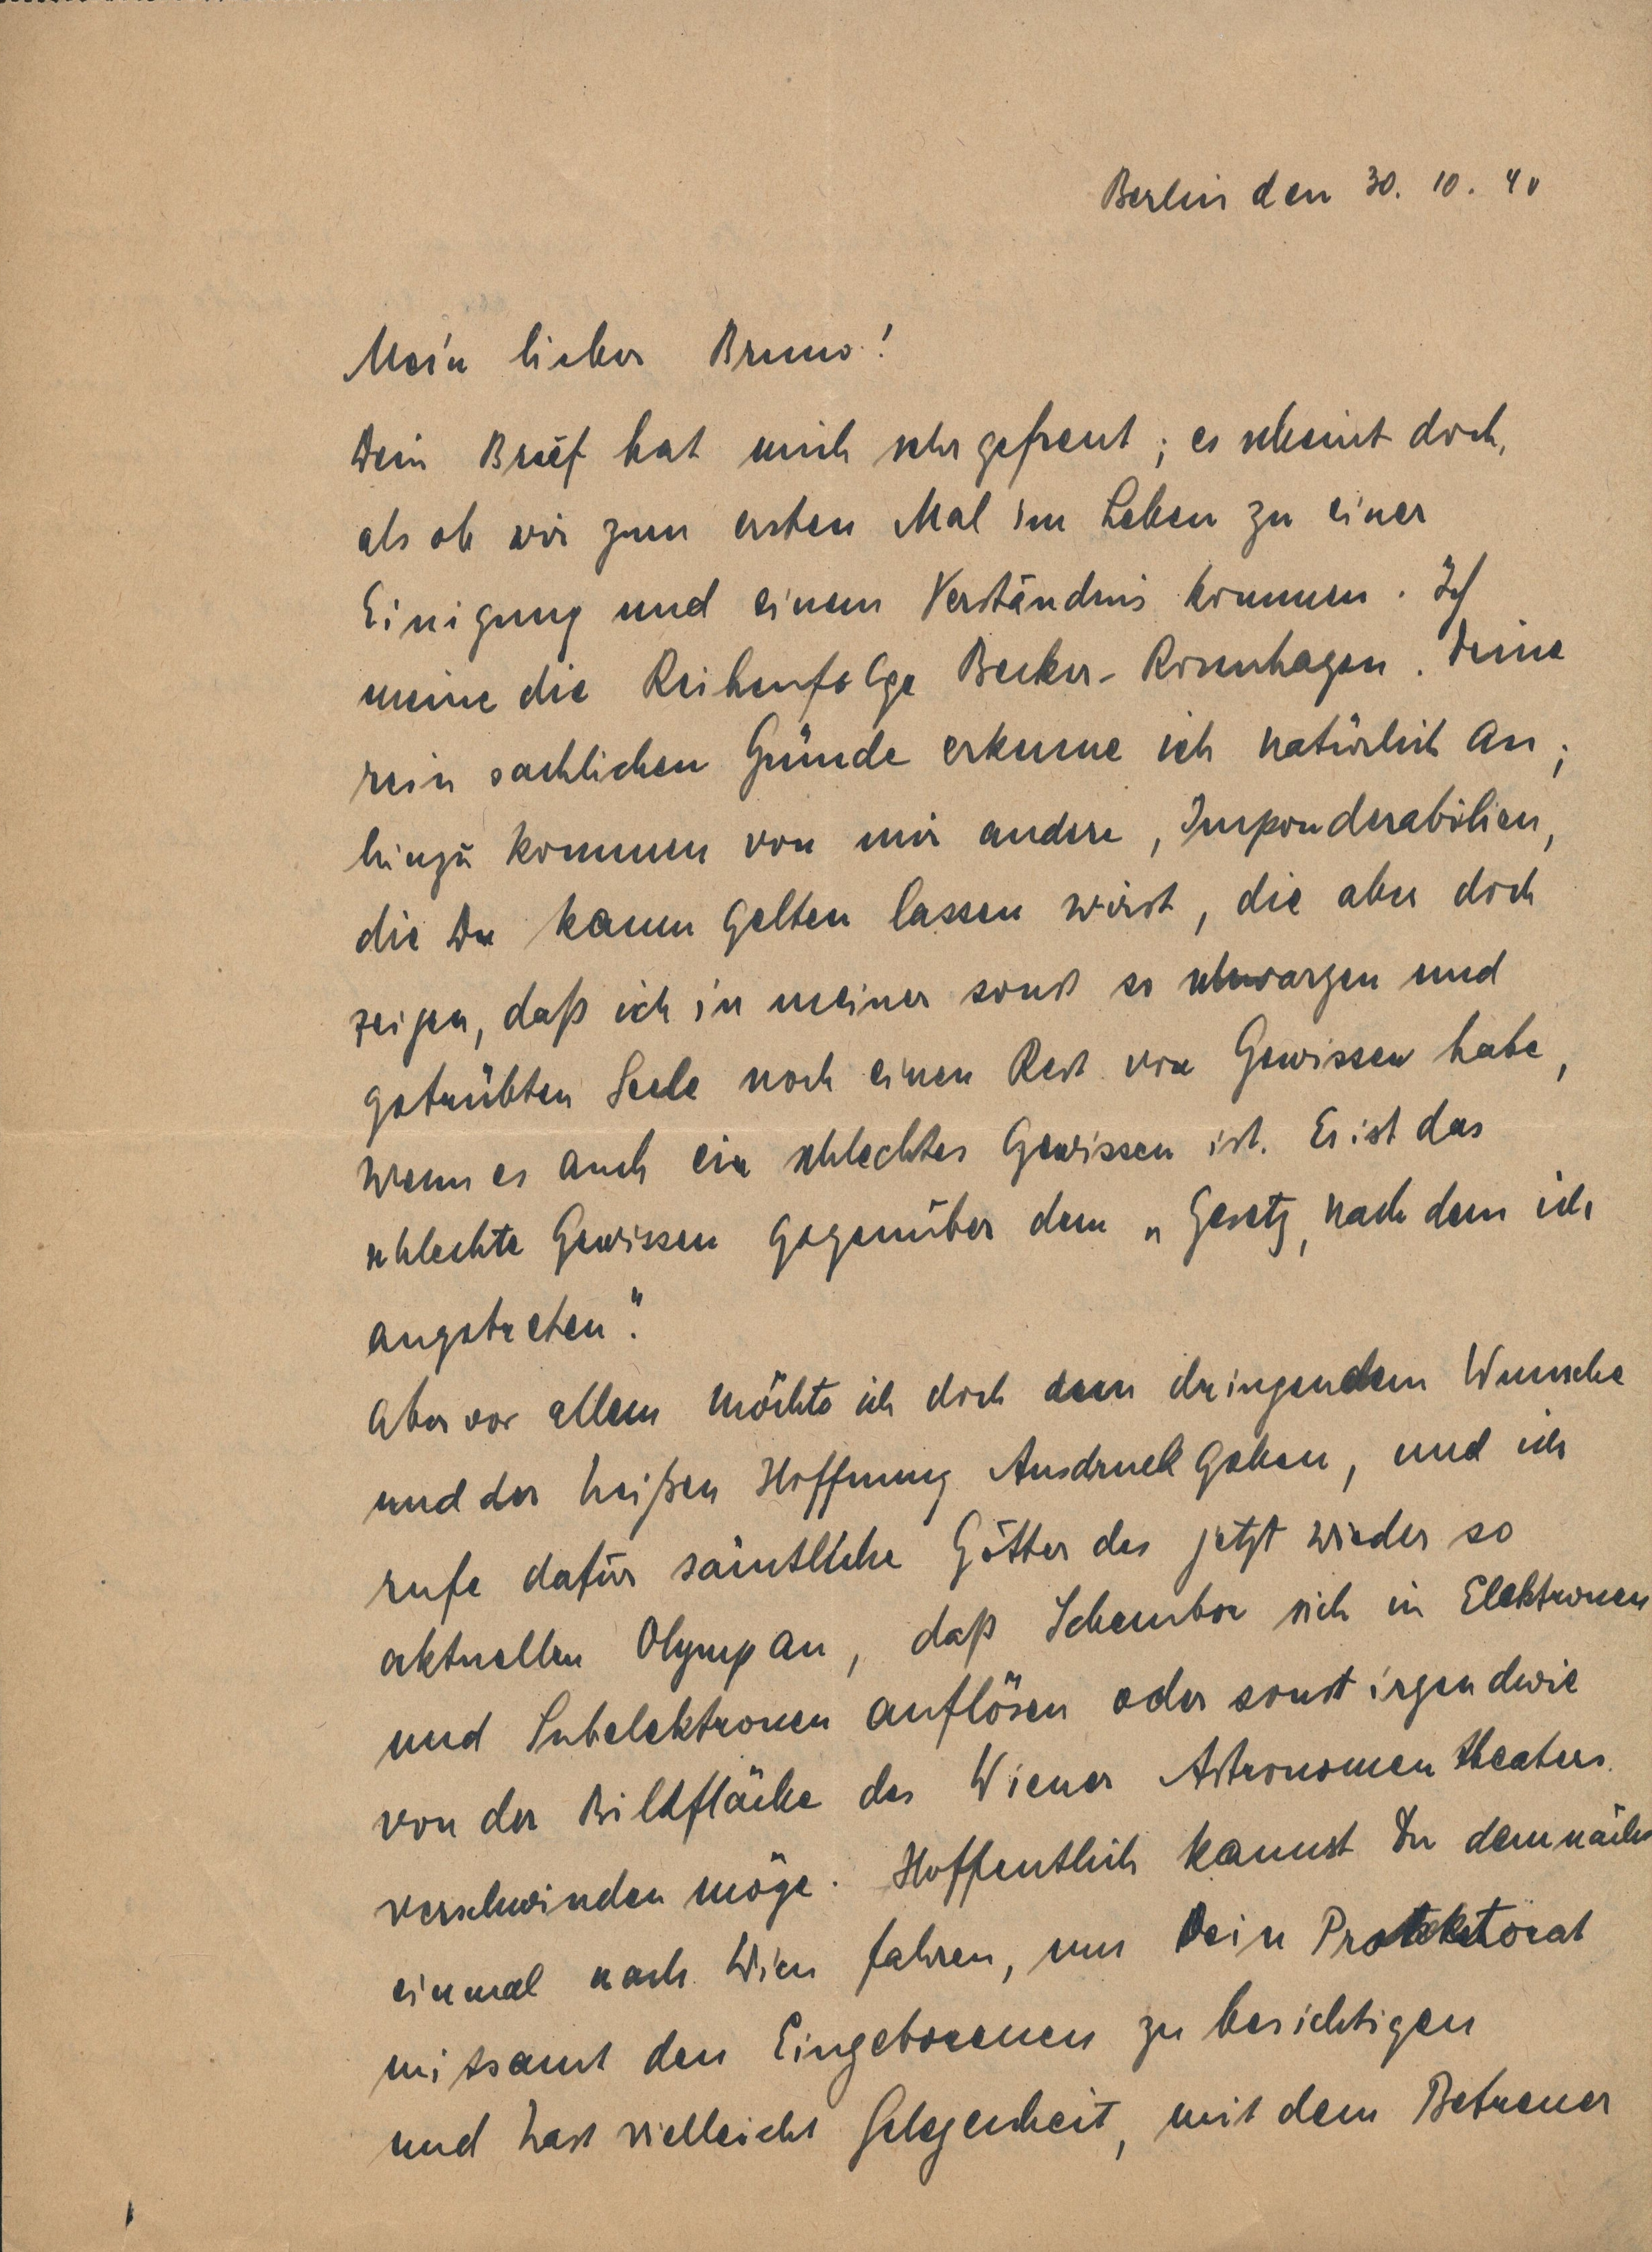 Berlin den 30. 10. 40
Mein lieber Bruno!
Dein Brief hat mich sehr gefreut; es scheint doch,
als ob wir zum ersten Mal im Leben zu einer
Einigung und einem Verständnis kommen. Ich
meine die Reihenfolge Becker-Rosenhagen. Deine
rein sachlichen Gründe erkenne ich natürlich an;
hinzu kommen von mir andere, Imponderabilien,
die Du kaum gelten lassen wirst, die aber doch
zeigen, daß ich in meiner sonst so schwarzen und
getrübten Seele noch einen Rest von Gewissen habe,
wenn es auch ein schlechtes Gewissen ist. Es ist das
schlechte Gewissen gegenüber dem „Gesetz, nach dem ich
angetreten".
Aber vor allem möchte ich doch dem dringendem Wunsche
und der heißen Hoffnung Ausdruck geben, und ich
rufe dafür sämtliche Götter des jetzt wieder so
aktuellen Olymp an, daß Schembor sich in Elektronen
und Subelektronen auflösen oder sonst irgendwie
von der Bildfläche des Wiener Astronomentheaters
verschwinden möge. Hoffentlich kannst Du demnächs
einmal nach Wien fahren, um Dein Protektorat
mitsamt den Eingeborenen zu besichtigen
und hast vielleicht Gelegenheit, mit dem Betreuer